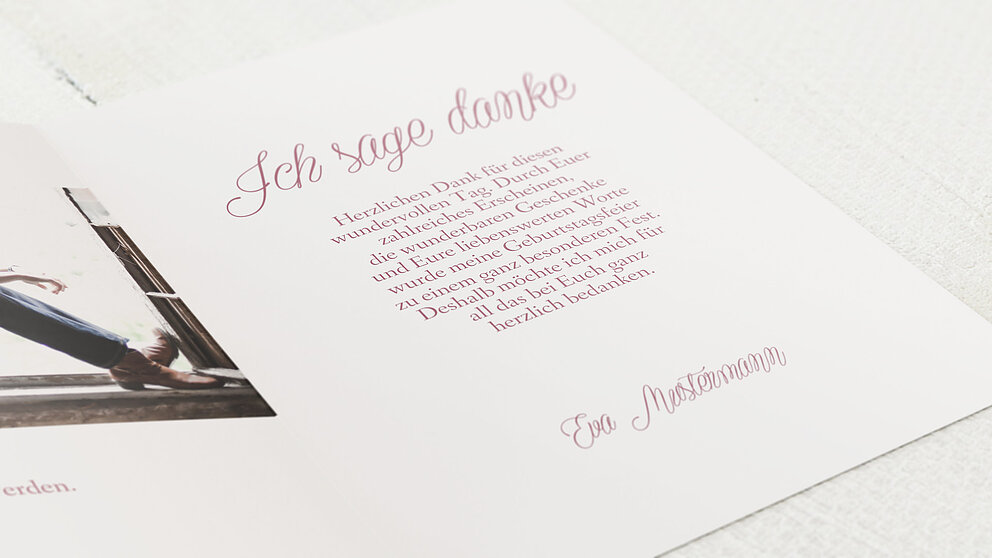 Ich sage danke
Herzlichen Dank für diesen
wundervollen Tag. Durch Euer
zahlreiches Erscheinen,
die wunderbaren Geschenke
und Eure liebenswerten Worte
wurde meine Geburtstagsfeier
zu einem ganz besonderen Fest.
Deshalb möchte ich mich für
all das bei Euch ganz
herzlich bedanken.
Eva Mustermann
erden.